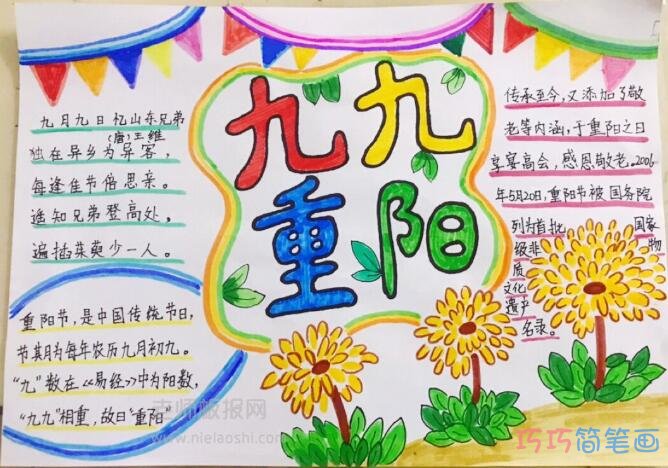 九九
重阳
九月九日忆山东兄弟
(唐)王维
独在异乡为异客，
每逢佳节倍思亲。
遥知兄弟登高处，
遍插茱萸少一人。
重阳节，是中国传统节日，
节其月为每年农历九月初九。
“九”数在《易经》中为阳数，
“九九”相重，故曰“重阳”
传承至今，又添加了敬
老等内涵，于重阳之日
享宴高会，感恩敬老。2006
年5月20日，重阳节被国务院
列为首批国家
级非物
质
文化
遗产
名录。
老师板报网
www.nielaoshi.com
巧巧简笔画